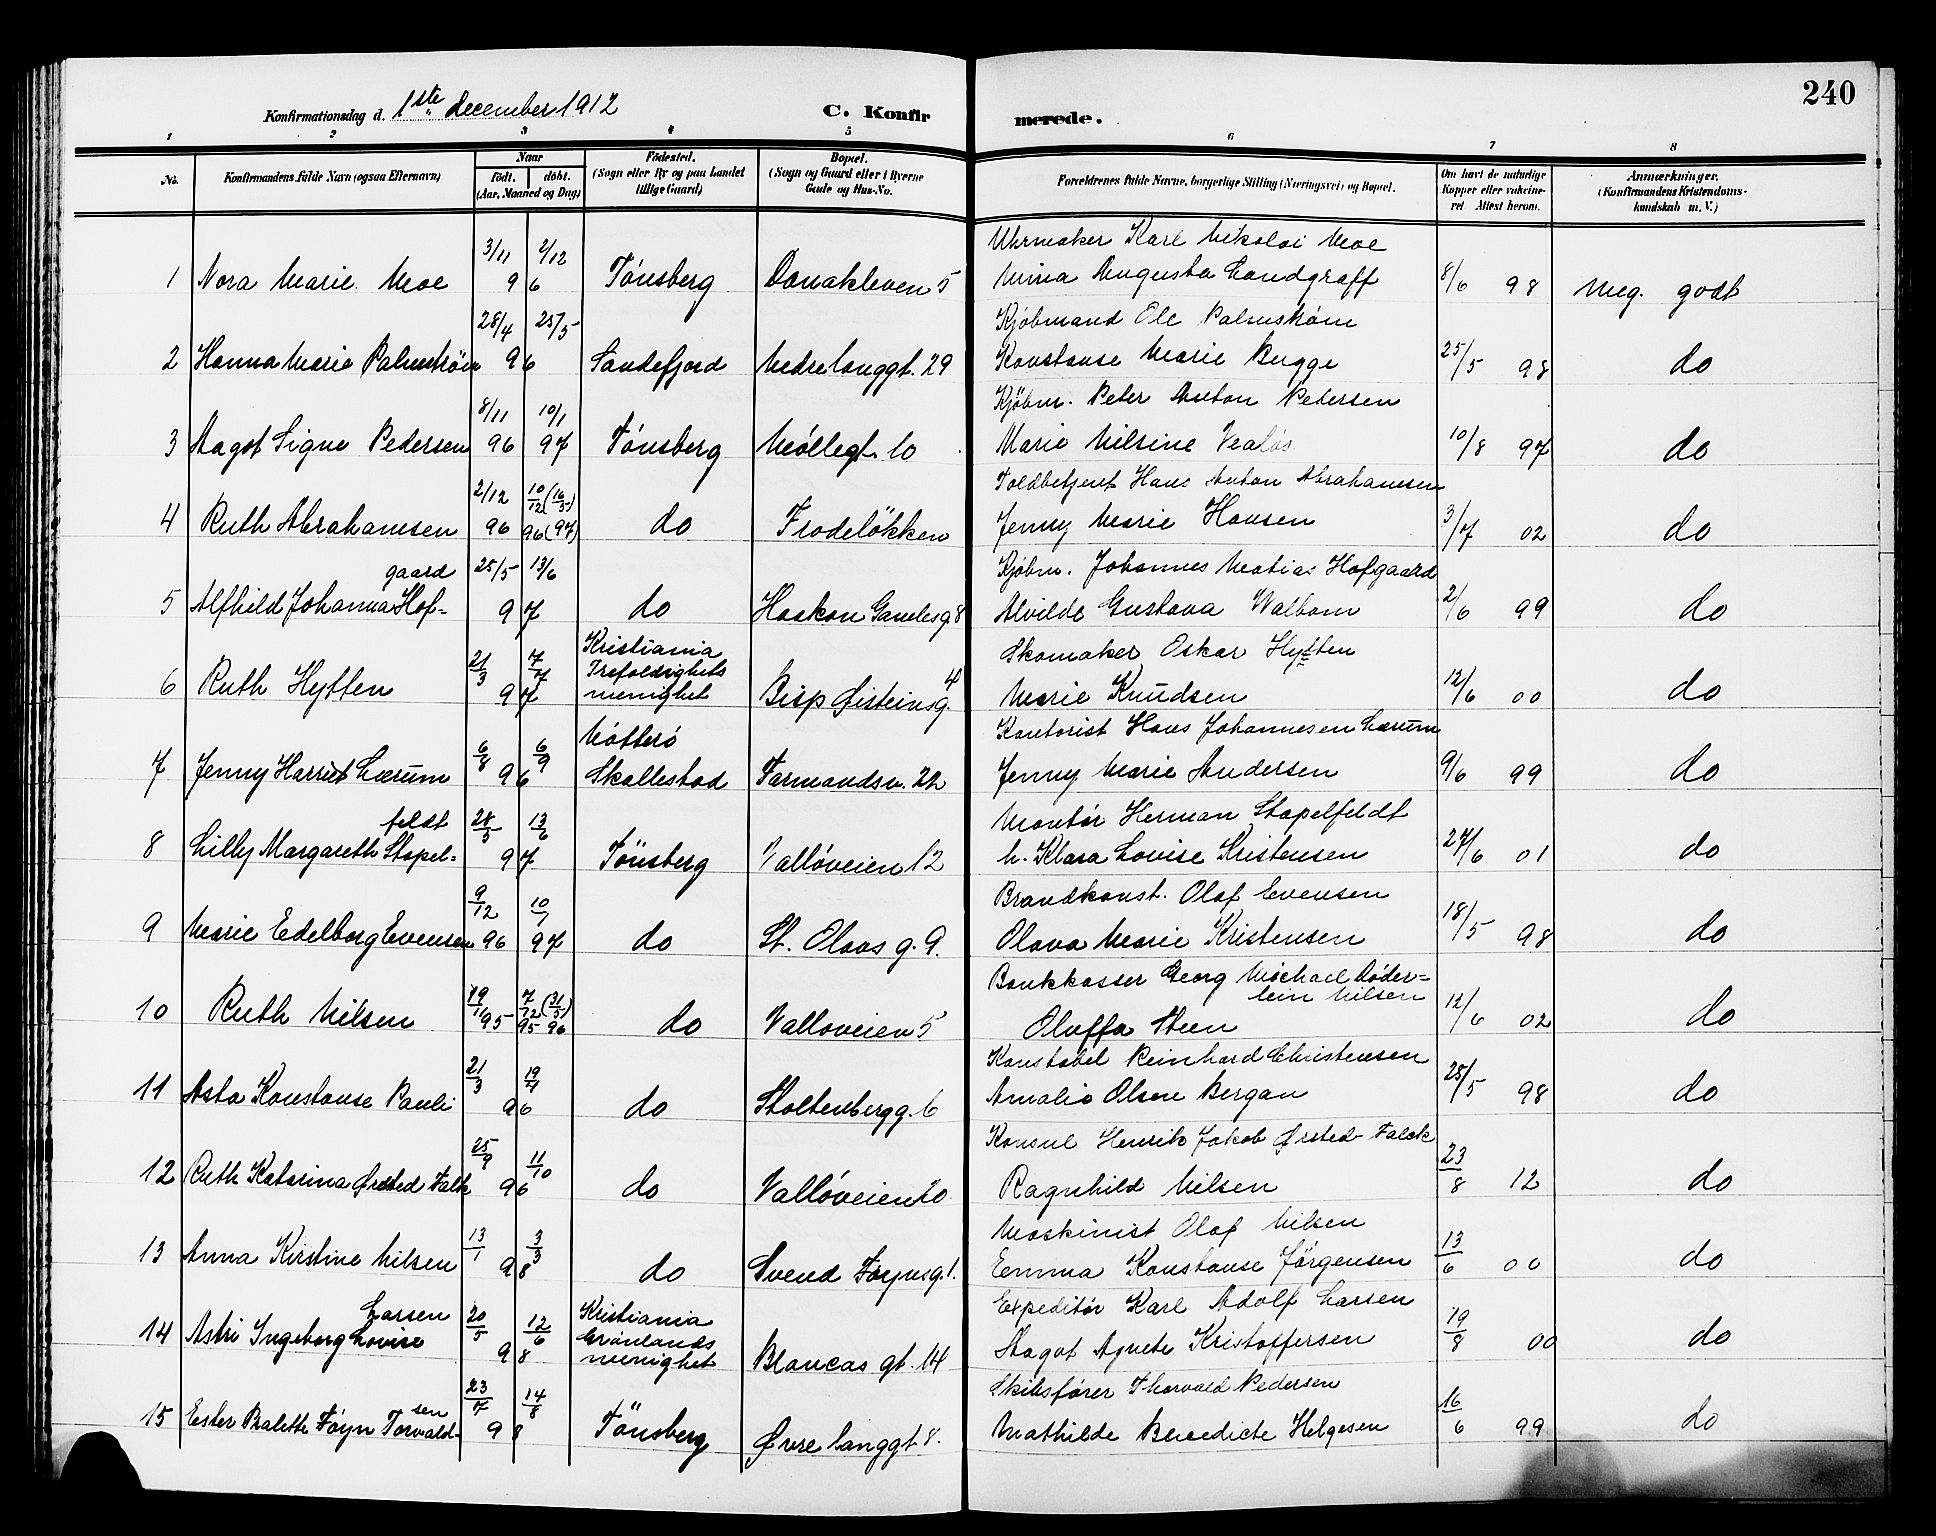 240
Konfirmationsdag d. 1ste december 1912 C. Konfir merede.
1 2 3 4 5 6 7 8
No. Konfirmandens fulde Navn (ogsaa Efternavn) Naar født. døbt. (Aar, Maaned og Dag) Fødested. (Sogn eller By og paa Landet tillige Gaard) Bopæl. (Sogn og Gaard eller i Byerne Gade og Hus-No. Forældrenes fulde Navne, borgerlige Stilling (Næringsvei) og Bopæl. Om havt de naturlige Kopper eller vakcineret Attest herom. Anmærkninger. (Konfirmandens Kristendomskundskab m. V.)
3/11 2/12 Uhrmaker Karl Nikolai Moe
1 Nora Marie Moe 96 Tönsberg Danakleven 5 Mina Augusta Landgraff 8/6 98 Meg. godt
28/4 25/5 Kjøbmand Ole Palmström
2 Hanna Marie Palmström 96 Sandefjord Nedre langgt. 29 Konstanse Marie Bugge 25/5 98 do
8/11 10/1 Kjöbm. Peter Anton Pedersen
3 Aagot Signe Pedersen 96 97 Tönsberg Möllegt. 10 Marie Nilsine 10/8 97 do
2/12 10/12 (16/3) Toldbetjent Hans Anton Abrahamsen
4 Ruth Abrahamsen 96 96 (97) do Frodelökken Jenny Marie Hansen 3/7 02 do
gaard 25/5 13/6 Kjøbm. Johannes Matias Hofgaard
5 Alfhild Johanna Hof- 97 do Haakon Gamlesg. 8 Alvilde Gustava Walbom 2/6 99 do
21/3 7/7 Kristiania Trefoldigheds menighet Skomaker Oskar Hytten
6 Ruth Hytten 97 Bisp Øisteinsg. 4 Marie Knudsen 12/6 00 do
6/8 6/9 Nötterö Kontorist Hans Johannesen Lærum
7 Jenny Harriet Lærum 96 Skallestad Farmandsv. 22 Jenny Marie Andersen 9/6 99 do
feldt 28/5 13/6 Montör Herman Stapelfeldt
8 Lilly Margareth Stapel- 97 Tönsberg Vallöveien 12 h. Klara Lovise Kristensen 27/6 01 do
9/12 10/1 Brandkonst. Olaf Evensen
9 Marie Edelborg Evensen 96 97 do St. Olavs g. 9. Olava Marie Kristensen 18/5 98 do
19/11 7/12 (31/5) Bankkasser Georg Michael Döder-
lein Nilsen
10 Ruth Nilsen 95 95 96 do Valloveien 5 Oluffa Steen 12/6 02 do
21/3 19/4 Konstabel Reinhard Christensen
11 Asta Konstanse Pauli 96 do Stoltenbergg. 6 Amalie Olsen Bergan 25/5 98 do
25/9 11/10 Konsul Henrik Jakob Ørsted Falck
12 Ruth Katarina Ørsted Falk 96 do Vallöveien 20 Ragnhild Nilsen 23/8 12 do
13/1 3/3 Maskinist Olaf Nilsen
13 Anna Kirstine Nilsen 98 do Svend Føynsg. 1. Emma Konstanse Jörgensen 13/6 00 do
Larsen 20/5 12/6 Kristiania Grönlands menighet Expeditör Karl Adolf Larsen
14 Astri Ingeborg Lovise 98 Blancas gt. 14 Aagot Agnete Kristoffersen 19/8 00 do
sen 23/7 14/8 Skibsfører Thorvald Pedersen
15 Ester Ralette Föyn Torvald- 98 Tönsberg Øvre langgt. 8. Mathilde Benedicte Helgesen 16/6 99 do